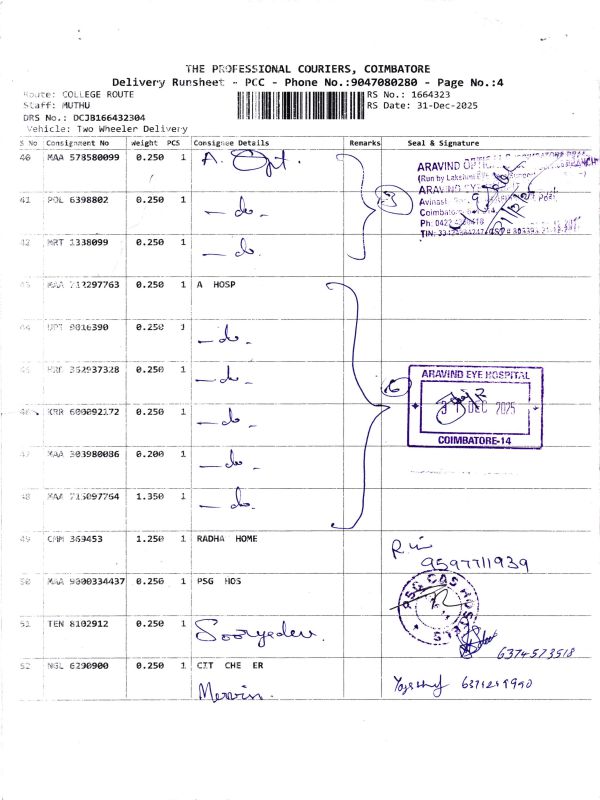 THE PROFESSIONAL COURIERS, COIMBATORE
Delivery Runsheet - PCC - Phone No.:9047080280 - Page No.:4
Route: COLLEGE ROUTE
RS No.: 1664323
Staff: MUTHU
RS Date: 31-Dec-2025
DRS No.: DCJB166432304
Vehicle: Two Wheeler Delivery
S No Consignment No Weight PCS Consignee Details Remarks Seal & Signature
40 MAA 578580099 0.250 1 A. Opt.
ARAVIND
(Run by
Avinashi
Coimbatore
Ph: 0422
TIN:
3
41 POL 6398802 0.250 1 - do -
42 MRT 1338099 0.250 1 - do.
43 MAA 717297763 0.250 1 A HOSP
44 UPT 9016390 0.250 1 - do -
45 362937328 0.250 1 - do -
6
ARAVIND EYE HOSPITAL
31 DEC 2025
COIMBATORE-14
46 KRR 600092172 0.250 1 - do -
47 MAA 303980086 0.200 1 - do -
48 MAA 715097764 1.350 1 - do.
49 CMM 369453 1.250 1 RADHA HOME
9597711939
50 MAA 9000334437 0.250 1 PSG HOS
PSG CAS HOSTELS
51 TEN 8102912 0.250 1 Sooryadev.
6374573518
52 NGL 6290900 0.250 1 CIT CHE ER
Mervin.